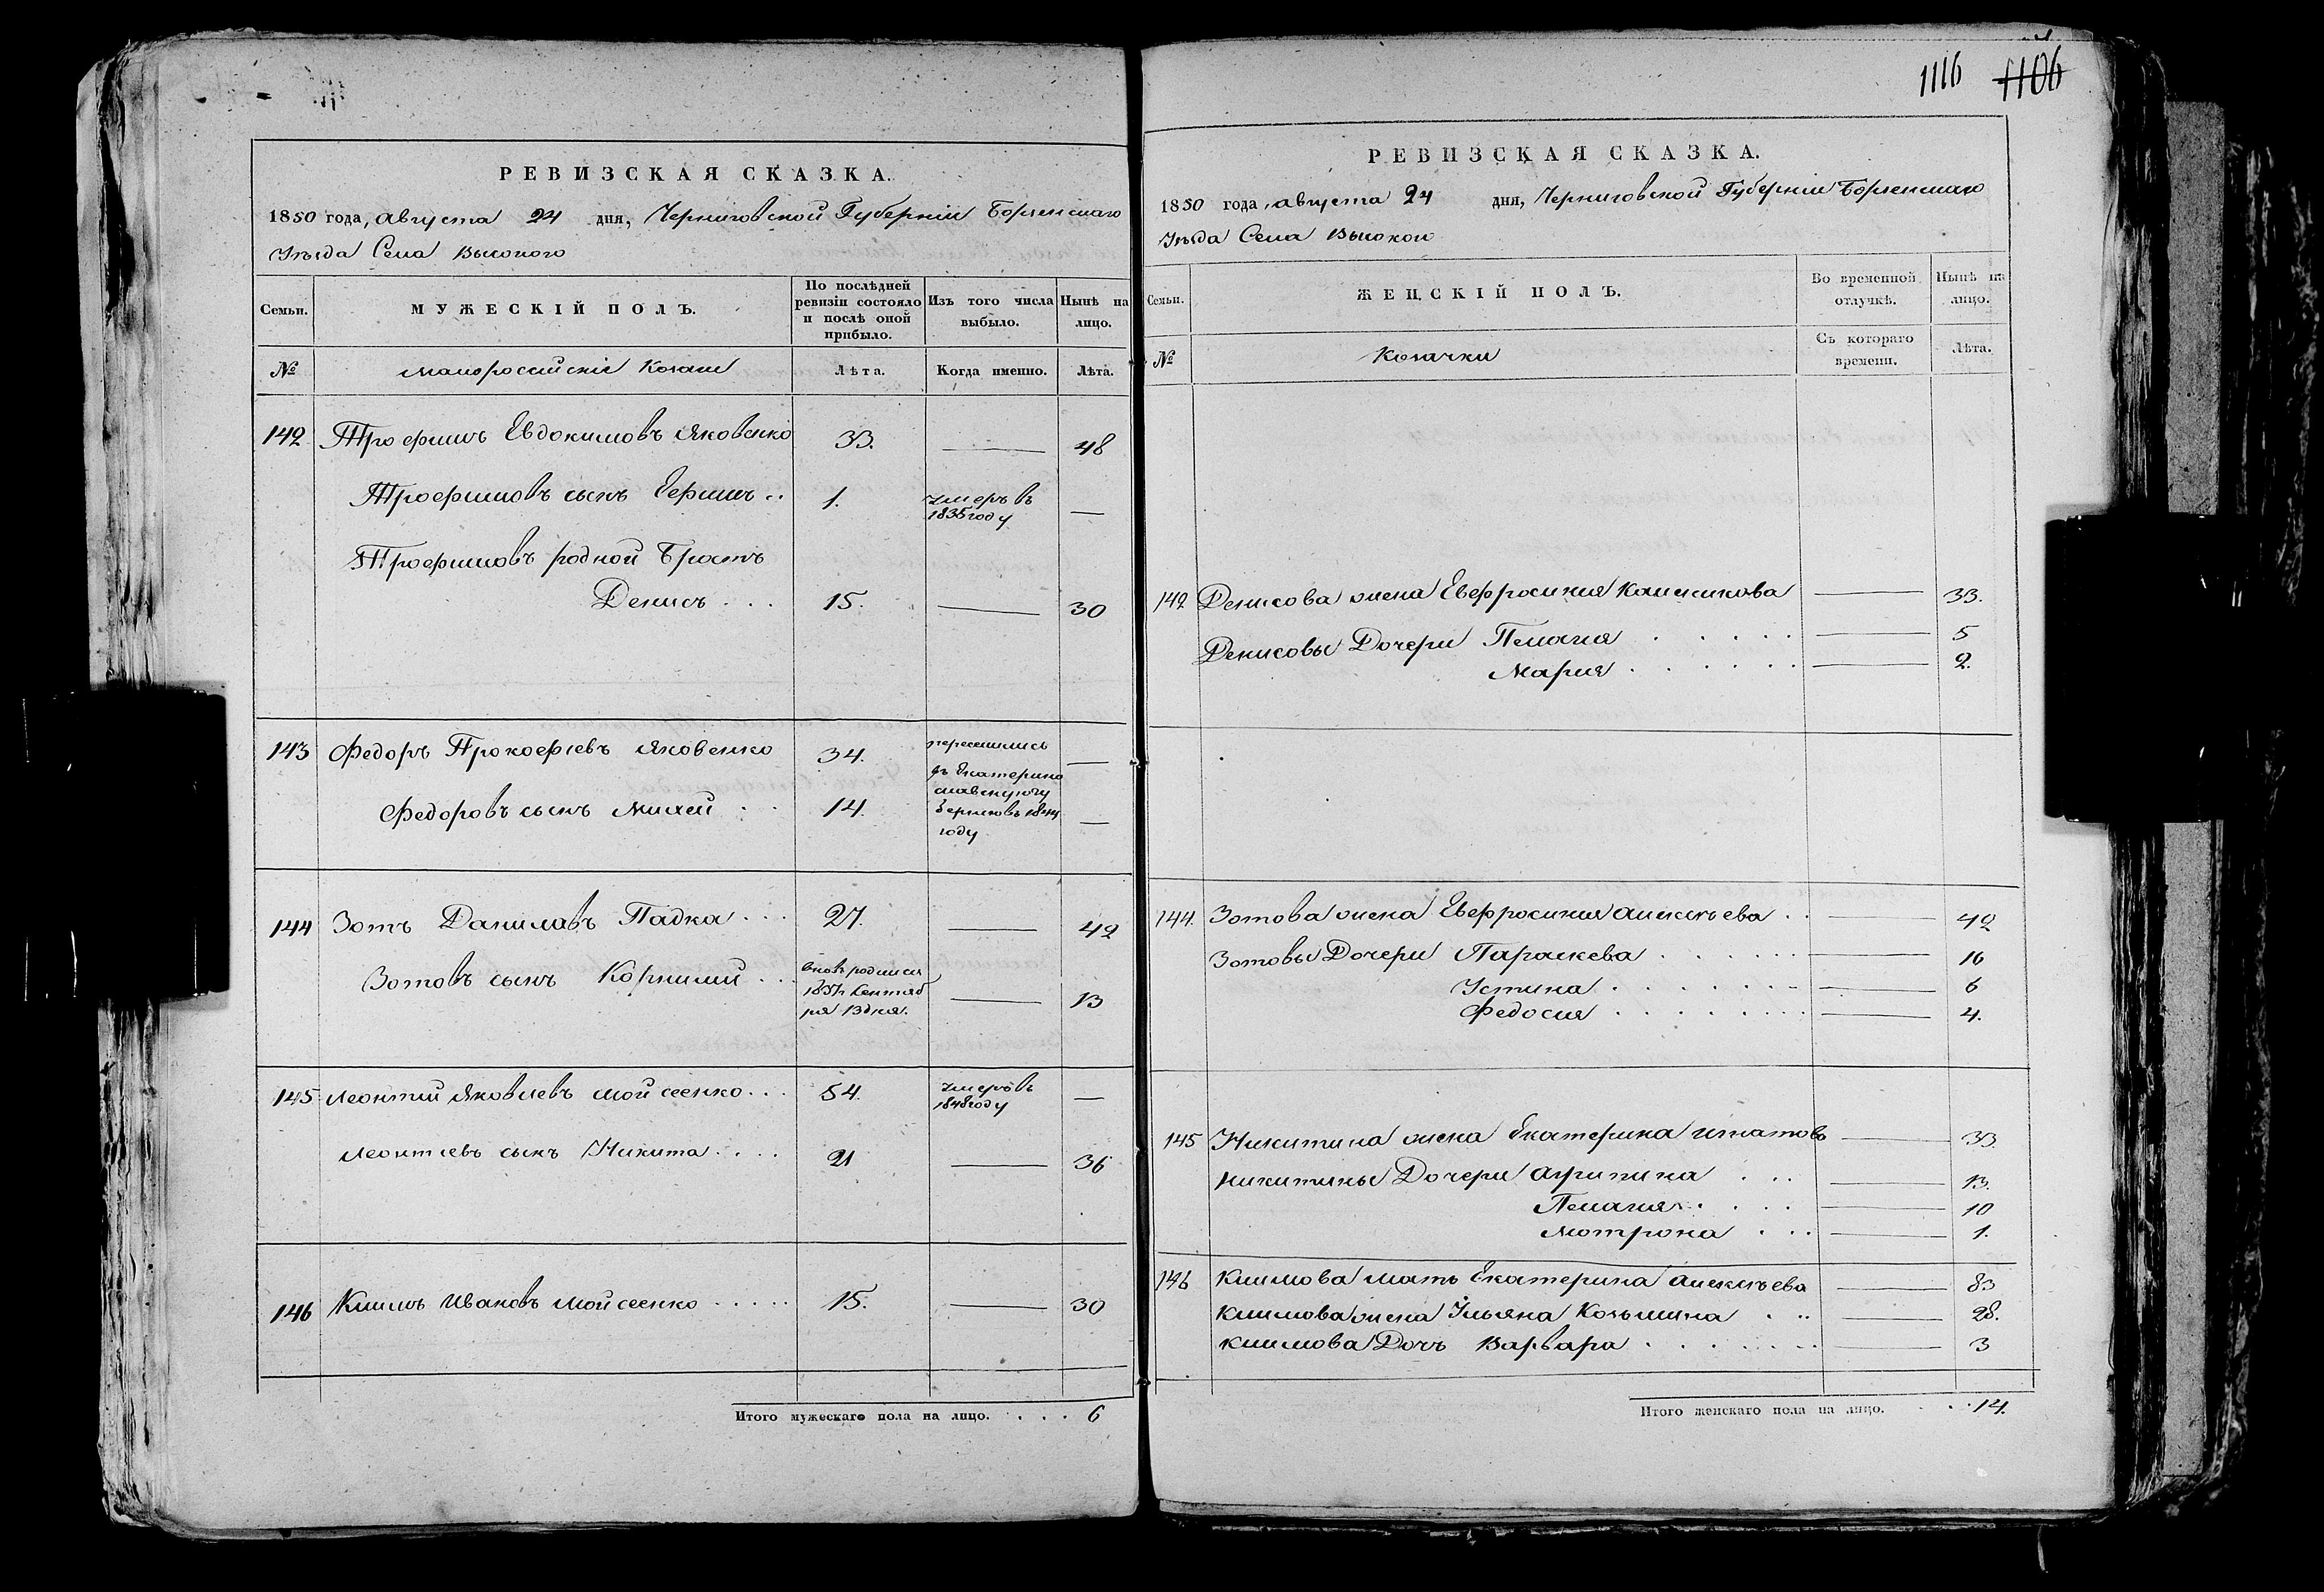 1116 1106
РЕВИЗСКАЯ СКАЗКА.
1850 года, августа 24 дня, Черниговской Губерніи Борзенскаго
Уѣзда Села Высокого
Семьи. МУЖЕСКІЙ ПОЛЪ. По послѣдней ревизіи состояло и послѣ оной прибыло. Изъ того числа выбыло. Нынѣ на лицо.
№ Малороссійскіе Козаки Лѣта. Когда именно. Лѣта.
142 Трофимъ Евдокимовъ Яковенко 33. 48
Трофимовъ сынъ Ефимъ 1. умеръ въ 1835 году
Трофимовъ родной Братъ
Денисъ 15. 30
143 Федоръ Прокофіевъ Яковенко 34. переселились
въ Екатерино
славскую гу
Федоровъ сынъ Михей 14. бернию въ 1844
году
144 Зотъ Даниловъ Падка 27. 42
Зотовъ сынъ Корнилий вновь родился
1837 Сентяб 13
ря 13 дня.
145 Леонтий Яковлевъ Мойсеенко 54. умеръ въ
1848 году
Леонтіевъ сынъ Никита 21 36
146 Климъ Ивановъ Мойсеенко 15. 30
Итого мужескаго пола на лицо. 6
РЕВИЗСКАЯ СКАЗКА.
1850 года, августа 24 дня, Черниговской Губерніи Борзенскаго
Уѣзда Села Высокого
Семьи. ЖЕНСКІЙ ПОЛЪ. Во временной отлучкѣ. Нынѣ на лицо.
№ Козачки Съ котораго времени. Лѣта.
142 Денисова жена Евфросиния 33.
Денисовы Дочери Пелагия 5
Мария 2.
144. Зотова жена Евфросиния Алексѣева 42
Зотовы Дочери Параскева 16
Устина 6
Федосия 4.
145 Никитина жена Екатерина Игнатова 33.
Никитины Дочери Агрипина 13.
Пелагия 10
Мотрона 1.
146 Климова мать Екатерина Алексѣева 83
Климова жена Ульяна Козьмина 28.
Климова Дочь Варвара 3
Итого женскаго пола на лицо. 14.